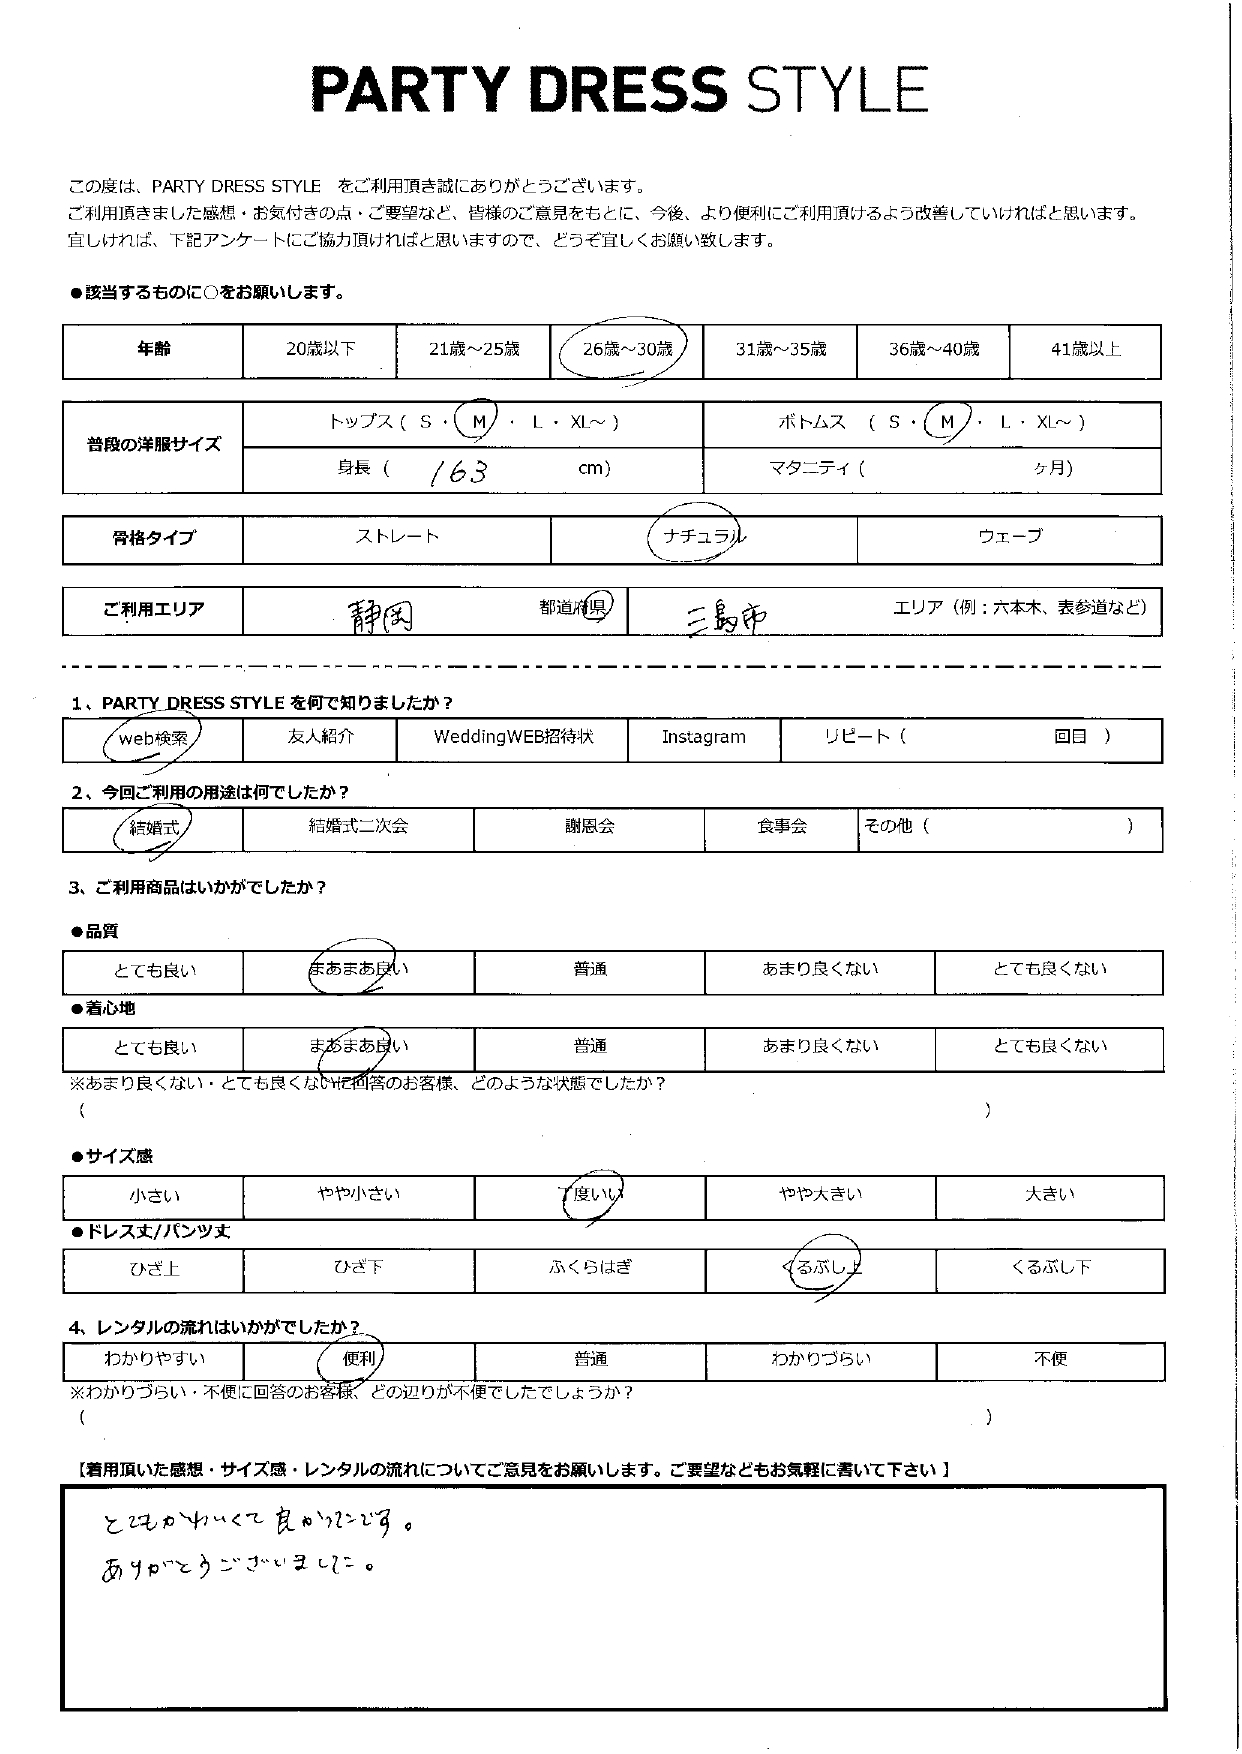 PARTY DRESS STYLE
この度は、PARTY DRESS STYLE をご利用頂き誠にありがとうございます。
ご利用頂きました感想・お気付きの点・ご要望など、皆様のご意見をもとに、今後、より便利にご利用頂けるよう改善していければと思います。
宜しければ、下記アンケートにご協力頂ければと思いますので、どうぞ宜しくお願い致します。
●該当するものに○をお願いします。
年齢 20歳以下 21歳～25歳 26歳～30歳 31歳～35歳 36歳～40歳 41歳以上
普段の洋服サイズ トップス ( S ・ M ・ L ・ XL～ ) ボトムス ( S ・ M ・ L ・ XL～ )
身長 ( 163 cm) マタニティ ( ヶ月)
骨格タイプ ストレート ナチュラル ウェーブ
ご利用エリア 静岡 都道府県 三島市 エリア（例：六本木、表参道など）
1、PARTY DRESS STYLE を何で知りましたか？
web検索 友人紹介 WeddingWEB招待状 Instagram リピート ( 回目 )
2、今回ご利用の用途は何でしたか？
結婚式 結婚式二次会 謝恩会 食事会 その他 ( )
3、ご利用商品はいかがでしたか？
●品質
とても良い まあまあ良い 普通 あまり良くない とても良くない
●着心地
とても良い まあまあ良い 普通 あまり良くない とても良くない
※あまり良くない・とても良くないに回答のお客様、どのような状態でしたか？
( )
●サイズ感
小さい やや小さい 丁度いい やや大きい 大きい
●ドレス丈/パンツ丈
ひざ上 ひざ下 ふくらはぎ くるぶし上 くるぶし下
4、レンタルの流れはいかがでしたか？
わかりやすい 便利 普通 わかりづらい 不便
※わかりづらい・不便に回答のお客様、どの辺りが不便でしたでしょうか？
( )
【着用頂いた感想・サイズ感・レンタルの流れについてご意見をお願いします。ご要望などもお気軽に書いて下さい 】
とてもかわいくて良かったです。
ありがとうございました。